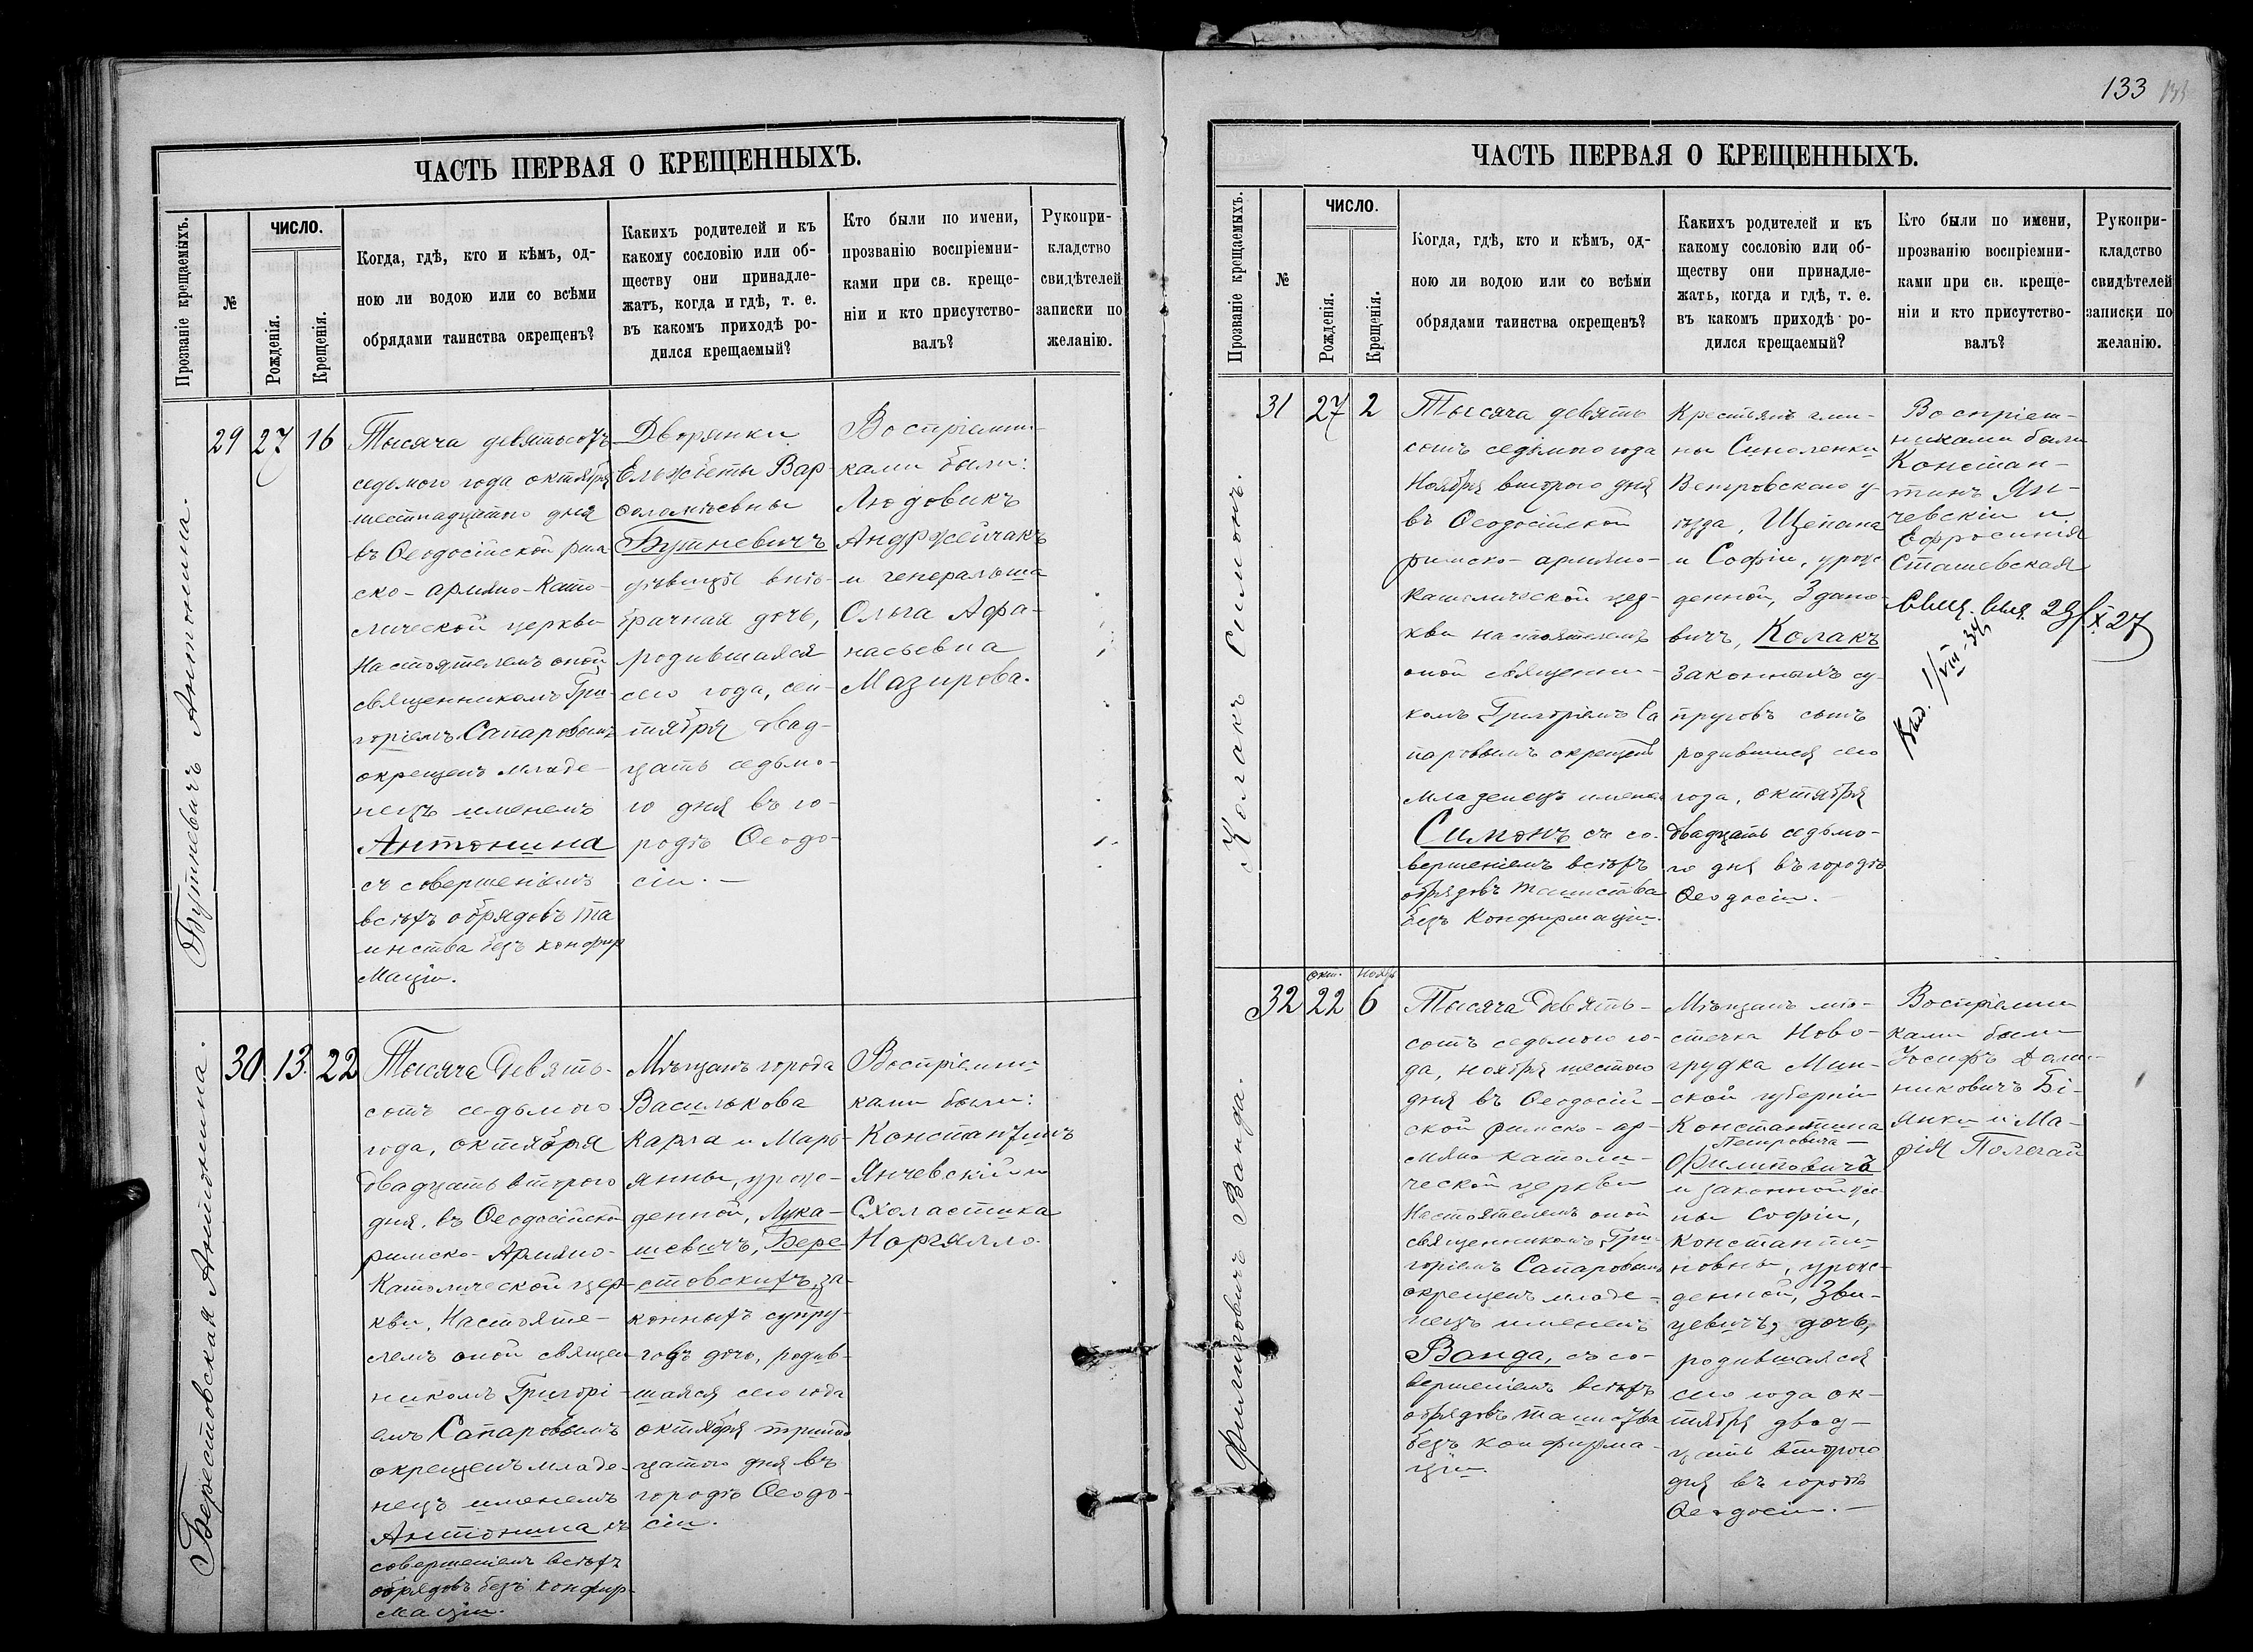 133
ЧАСТЬ ПЕРВАЯ О КРЕЩЕННЫХЪ.
Прозваніе крещаемыхъ.
№
ЧИСЛО.
Рожденія.
Крещенія.
Когда, гдѣ, кто и кѣмъ, од-
ною ли водою или со всѣми
обрядами таинства окрещенъ?
Какихъ родителей и къ
какому сословію или об-
ществу они принадле-
жатъ, когда и гдѣ, т. е.
въ какомъ приходѣ ро-
дился крещаемый?
Кто были по имени,
прозванію воспріемни-
ками при св. креще-
ніи и кто присутство-
валъ?
Рукопри-
кладство
свидѣтелей
записки по
желанію.
Бутневичъ Антонина.
29
27
16
Тысяча девятьсотъ
седьмого года октября
шестнадцатого дня
въ Ѳеодосійской рим
ско-армяно-Като-
лической церкви
Настоятелемъ оной
священникомъ Гри-
горіемъ Сапаровымъ
окрещенъ младе-
нецъ именемъ
Антонина
съ совершеніемъ
всѣхъ обрядовъ та
инства безъ конфир
маціи.
Дворянки
Ельжбеты Вар-
ѳоломѣевны
Бутневичъ
дѣвицы внѣ-
брачная дочь,
родившаяся
сего года, сен-
тября двад-
цать седьмо-
го дня въ го-
родѣ Ѳеодо-
сіи.—
Воспріемни-
ками были:
Людовикъ
Андржейчакъ
и генеральша
Ольга Афа-
насьевна
Мазирова.
Берестовская Антонина.
30
13
22
Тысяча девять-
сотъ седьмого
года, октября
двадцать второго
дня, въ Ѳеодосійской
римско-Армяно-
Католической цер-
кви, Настояте-
лемъ оной священ-
никомъ Григорі-
емъ Сапаровымъ
окрещенъ младе-
нецъ именемъ
Антонина съ
совершеніемъ всѣхъ
обрядовъ безъ конфир-
маціи.
Мѣщанъ города
Василькова
Карла и Марь-
янны, урож-
денной, Лука-
шевичъ, Бере-
стовскихъ, за-
конныхъ супру-
говъ дочь, родив-
шаяся сего года
октября тринад
цатого дня въ
городѣ Ѳеодо-
сіи.
Воспріемни-
ками были:
Константинъ
Янчевскій и
Схоластика
Норгялло.
ЧАСТЬ ПЕРВАЯ О КРЕЩЕННЫХЪ.
Прозваніе крещаемыхъ.
№
ЧИСЛО.
Рожденія.
Крещенія.
Когда, гдѣ, кто и кѣмъ, од-
ною ли водою или со всѣми
обрядами таинства окрещенъ?
Какихъ родителей и къ
какому сословію или об-
ществу они принадле-
жатъ, когда и гдѣ, т. е.
въ какомъ приходѣ ро-
дился крещаемый?
Кто были по имени,
прозванію воспріемни-
ками при св. креще-
ніи и кто присутство-
валъ?
Рукопри-
кладство
свидѣтелей
записки по
желанію.
Колакъ Симонъ.
31
27
2
Тысяча девять
сотъ седьмого года
Ноября второго дня
въ Ѳеодосійской
римско-армяно-
католической цер-
кви настоятелемъ
оной священни-
комъ Григоріемъ Са
паровымъ окрещенъ
младенецъ имене
Симонъ съ со-
вершеніемъ всѣхъ
обрядовъ таинства
безъ Конфирмаціи.
Крестьянъ гми-
ны Синоленки
Венгровскаго у-
ѣзда, Щепана
и Софіи, урож
денной, Здано-
вичъ, Колакъ
законныхъ су-
пруговъ сынъ
родившійся сего
года, октября
двадцать седьмо-
го дня въ городѣ
Ѳеодосіи.—
Воспріем-
никами были
Констан-
тинъ Ян-
чевскій и
Ефросинія
Сташевская
Филиповичъ Ванда.
32
окт.
22
нояб.
6
Тысяча девять-
сотъ седьмого го-
да, ноября шестого
дня въ Ѳеодосій-
ской римско-ар-
мяно католи-
ческой церкви
Настоятелемъ оной
священникомъ Гри-
горіемъ Сапаровымъ
окрещенъ младе-
нецъ именемъ
Ванда, съ со-
вершеніемъ всѣхъ
обрядовъ таинства
безъ конфирма-
ціи.
Мѣщанъ мѣ-
стечка Ново-
грудка Мин-
ской губерніи
Константина
Петровича—
Филиповича
и законной же-
ны Софіи,
Константи-
новны, урож-
денной, Зви-
цевичъ, дочь,
родившаяся
сего года ок-
тября двад-
цать второго
дня въ городѣ
Ѳеодосіи.—
Воспріемни
ками были
Іосифъ Доми-
никовичъ Бі-
янки и Ма-
рія Полегай